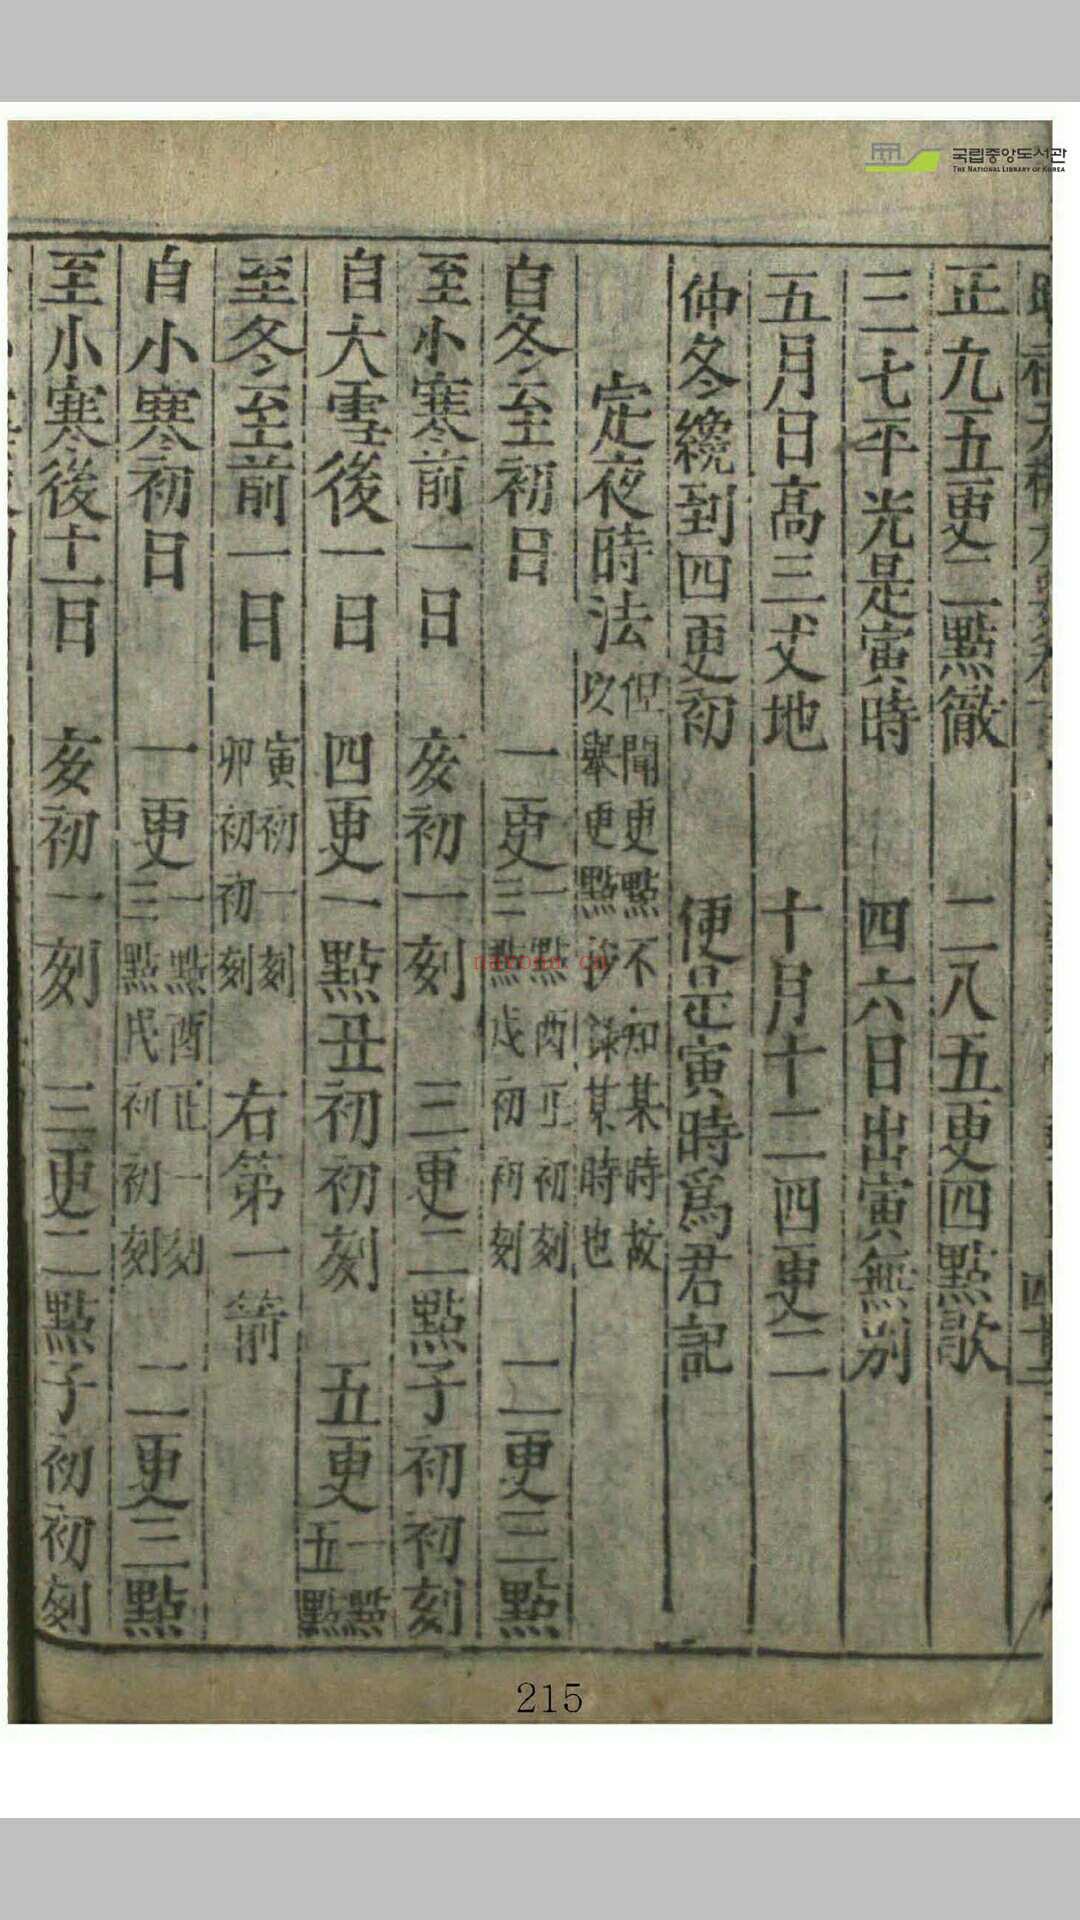 국립중앙도서관
THE NATIONAL LIBRARY OF KOREA
正九五更二點徹 二八五更四點歇
三七平光是寅時 四六日出寅無別
五月日高三丈地 十月十二四更二
仲冬纔到四更初 便是寅時爲君記
定夜時法 但聞更點不知某時故
以舉更點 錄某時也
自冬至初日 一更一點酉正初刻
三點戌初初刻 二更三點
至小寒前一日 亥初一刻 三更二點子初初刻
自大雪後一日 四更一點丑初初刻 五更一點
五點
至冬至前一日 寅初一刻
卯初初刻 右第一箭
自小寒初日 一更一點酉正一刻
三點戌初初刻 二更三點
至小寒後十一日 亥初一刻 三更二點子初初刻
nayona.cn
215